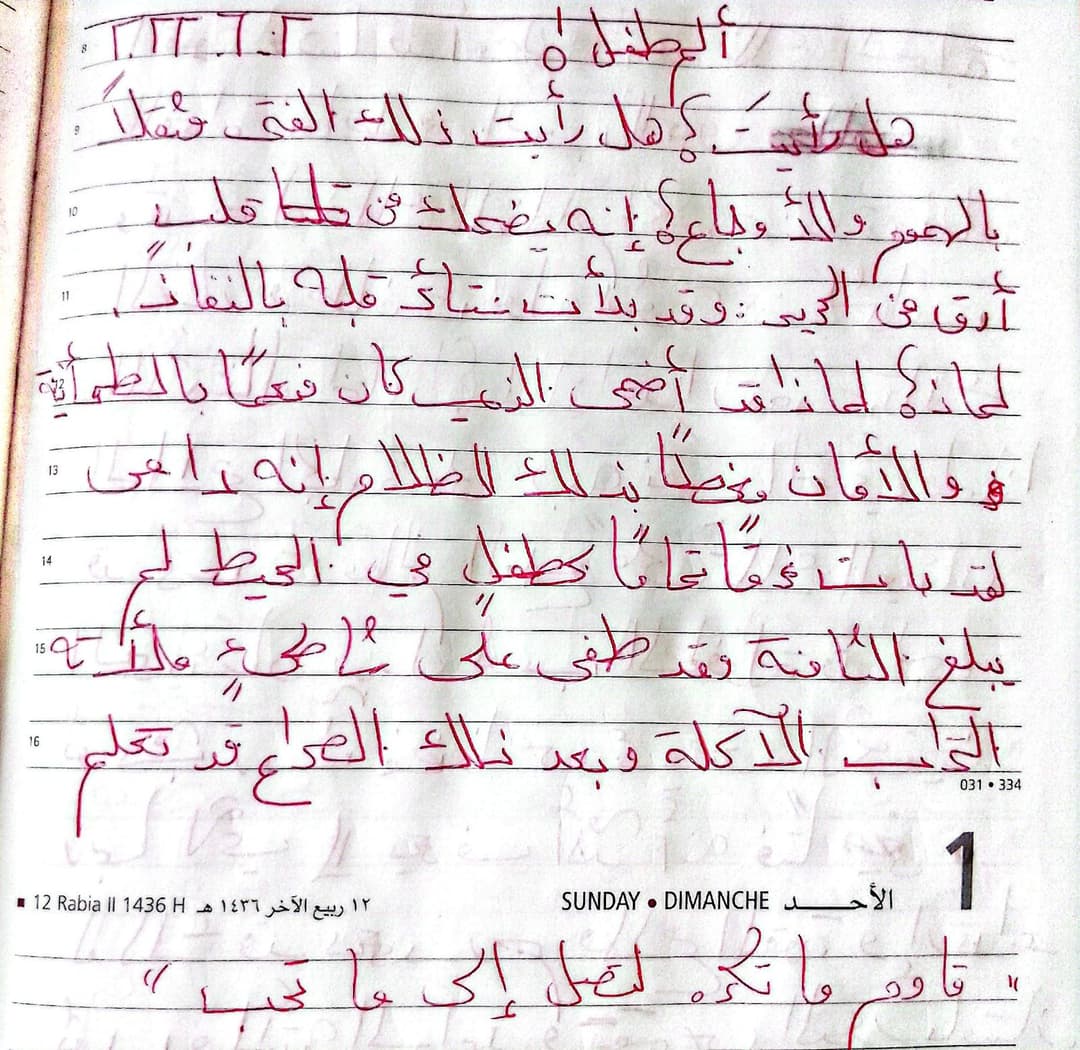 8
ألم طفل
9 هل رأيت؟ هل رأيت ذلك الفتى مثقلاً
10 بالهموم والأوجاع؟ إنه يضحك من قلب
11 أرق من الحرير. وقد بدأت قلبه
12 لماذا؟ لماذا قد أضحى الذي كان بالطمأنينة
13 والأمان بذلك الظلام إنه
14 لقد بات تمامًا كطفلٍ في المحيط لم
15 يبلغ الثامنة وقد طفى على شاطئٍ ملأته
16 الآكلة وبعد ذلك الصراع قد تعلم
031 • 334
1
12 Rabia II 1436 H ١٢ ربيع الآخر ١٤٣٦ هـ SUNDAY • DIMANCHE الأحد
" قاوم ما تكره لتصل إلى ما تحب "